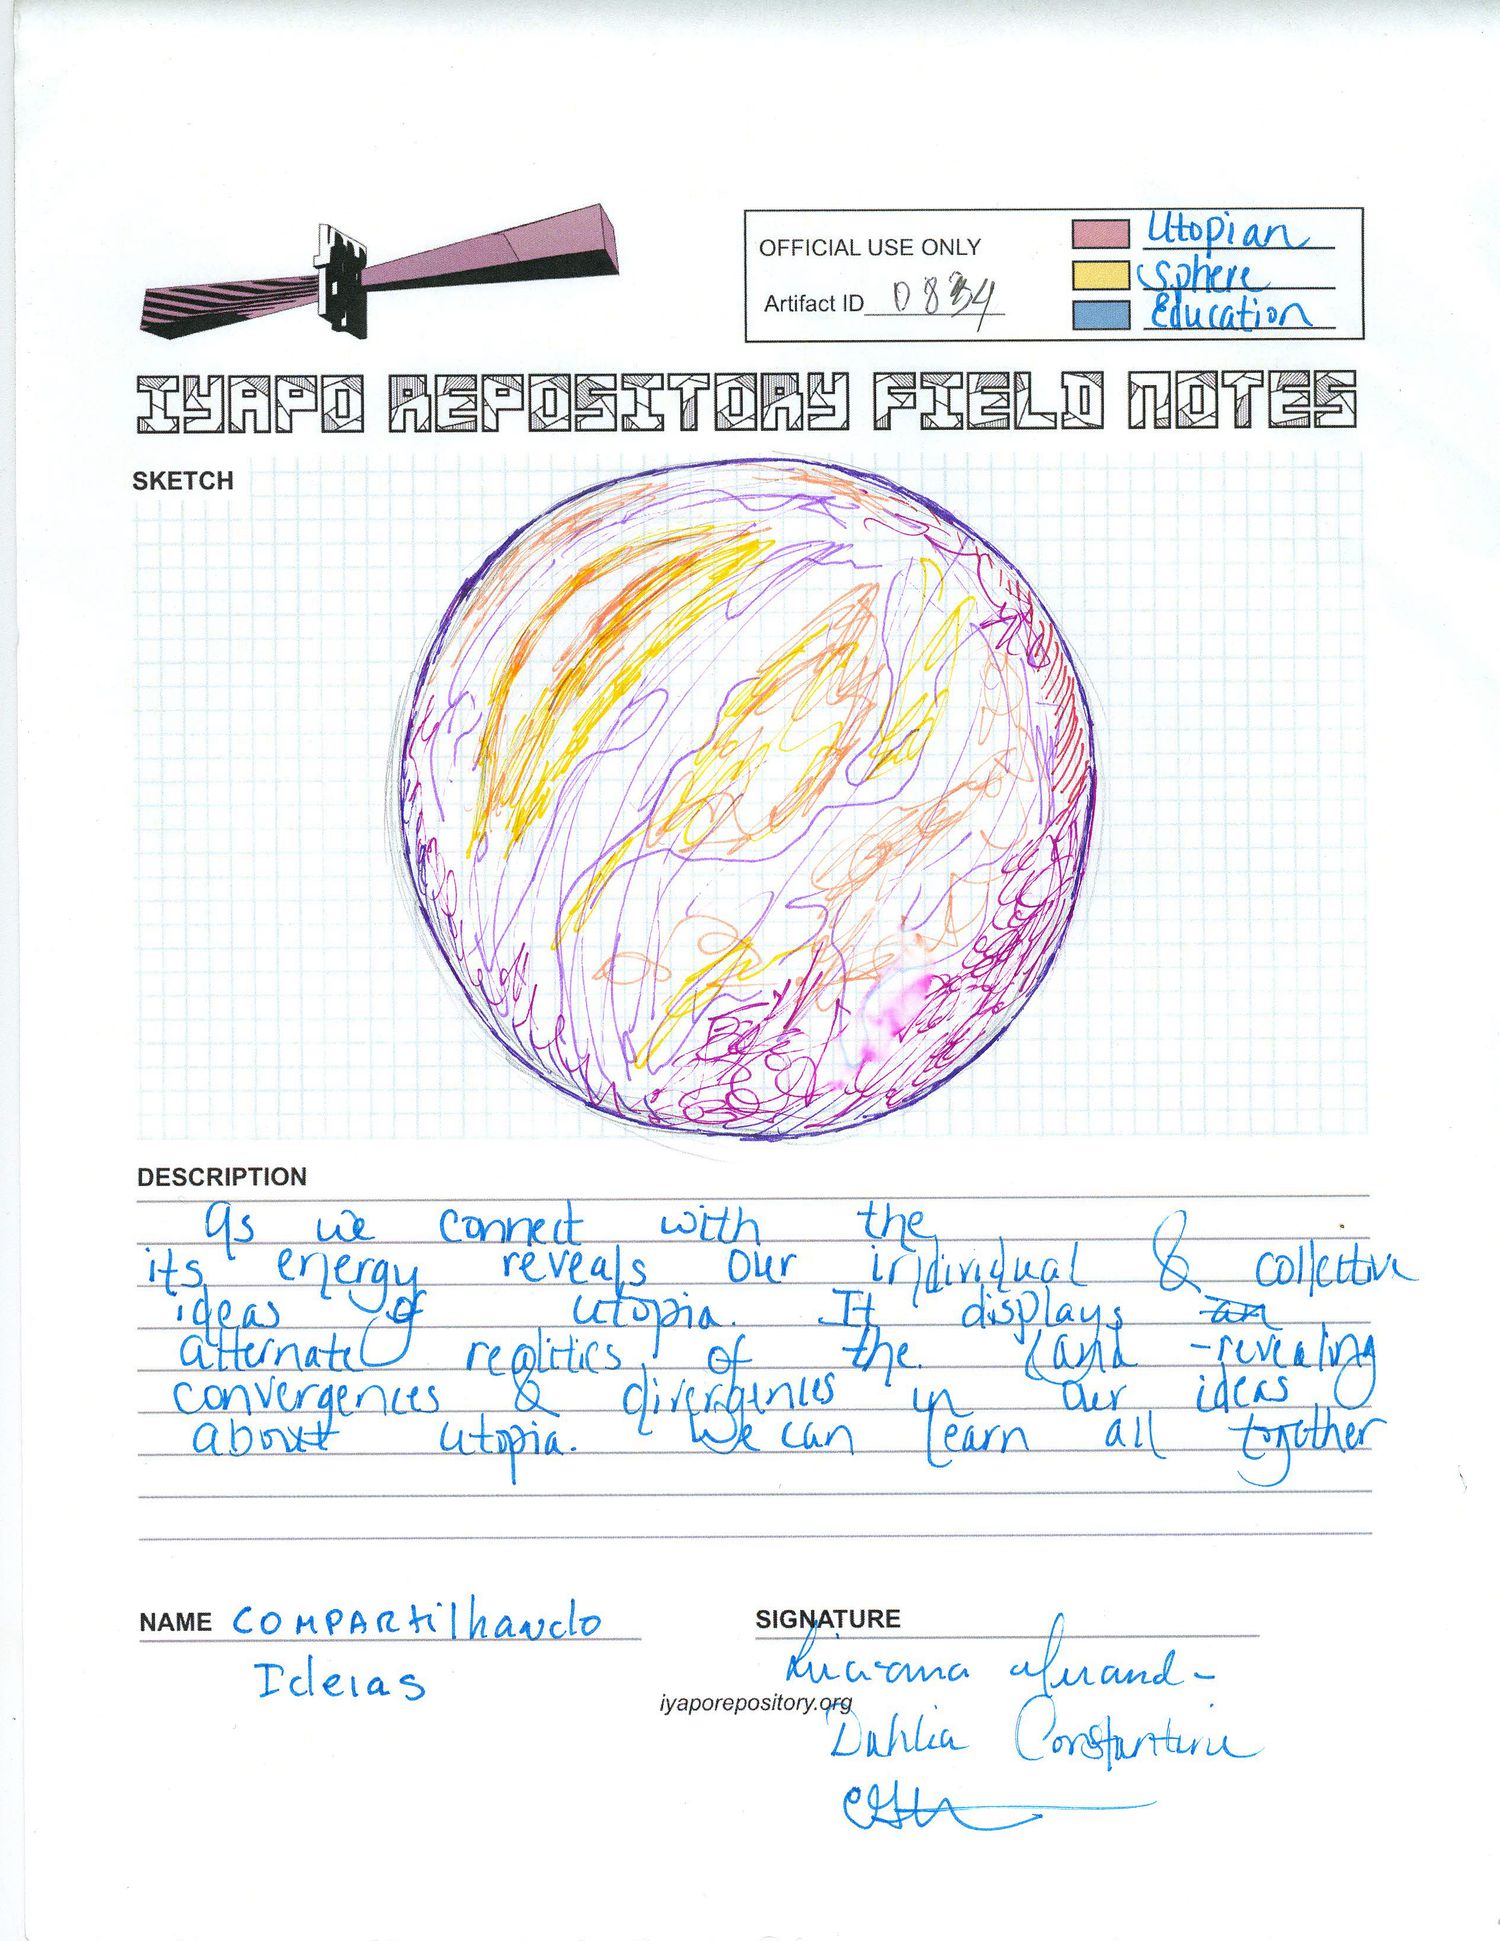 OFFICIAL USE ONLY
Artifact ID
Utopian
Sphere
Education
IYAPO REPOSITORY FIELD NOTES
SKETCH
DESCRIPTION
as we connect with the
its energy reveals our individual & collective
ideas of utopia. It displays an
alternate realities of the land - revealing
convergences & divergences in our ideas
about utopia. We can learn all together
NAME COMPARtilhando
Ideias
SIGNATURE
iyaporepository.org
Dahlia Constantine